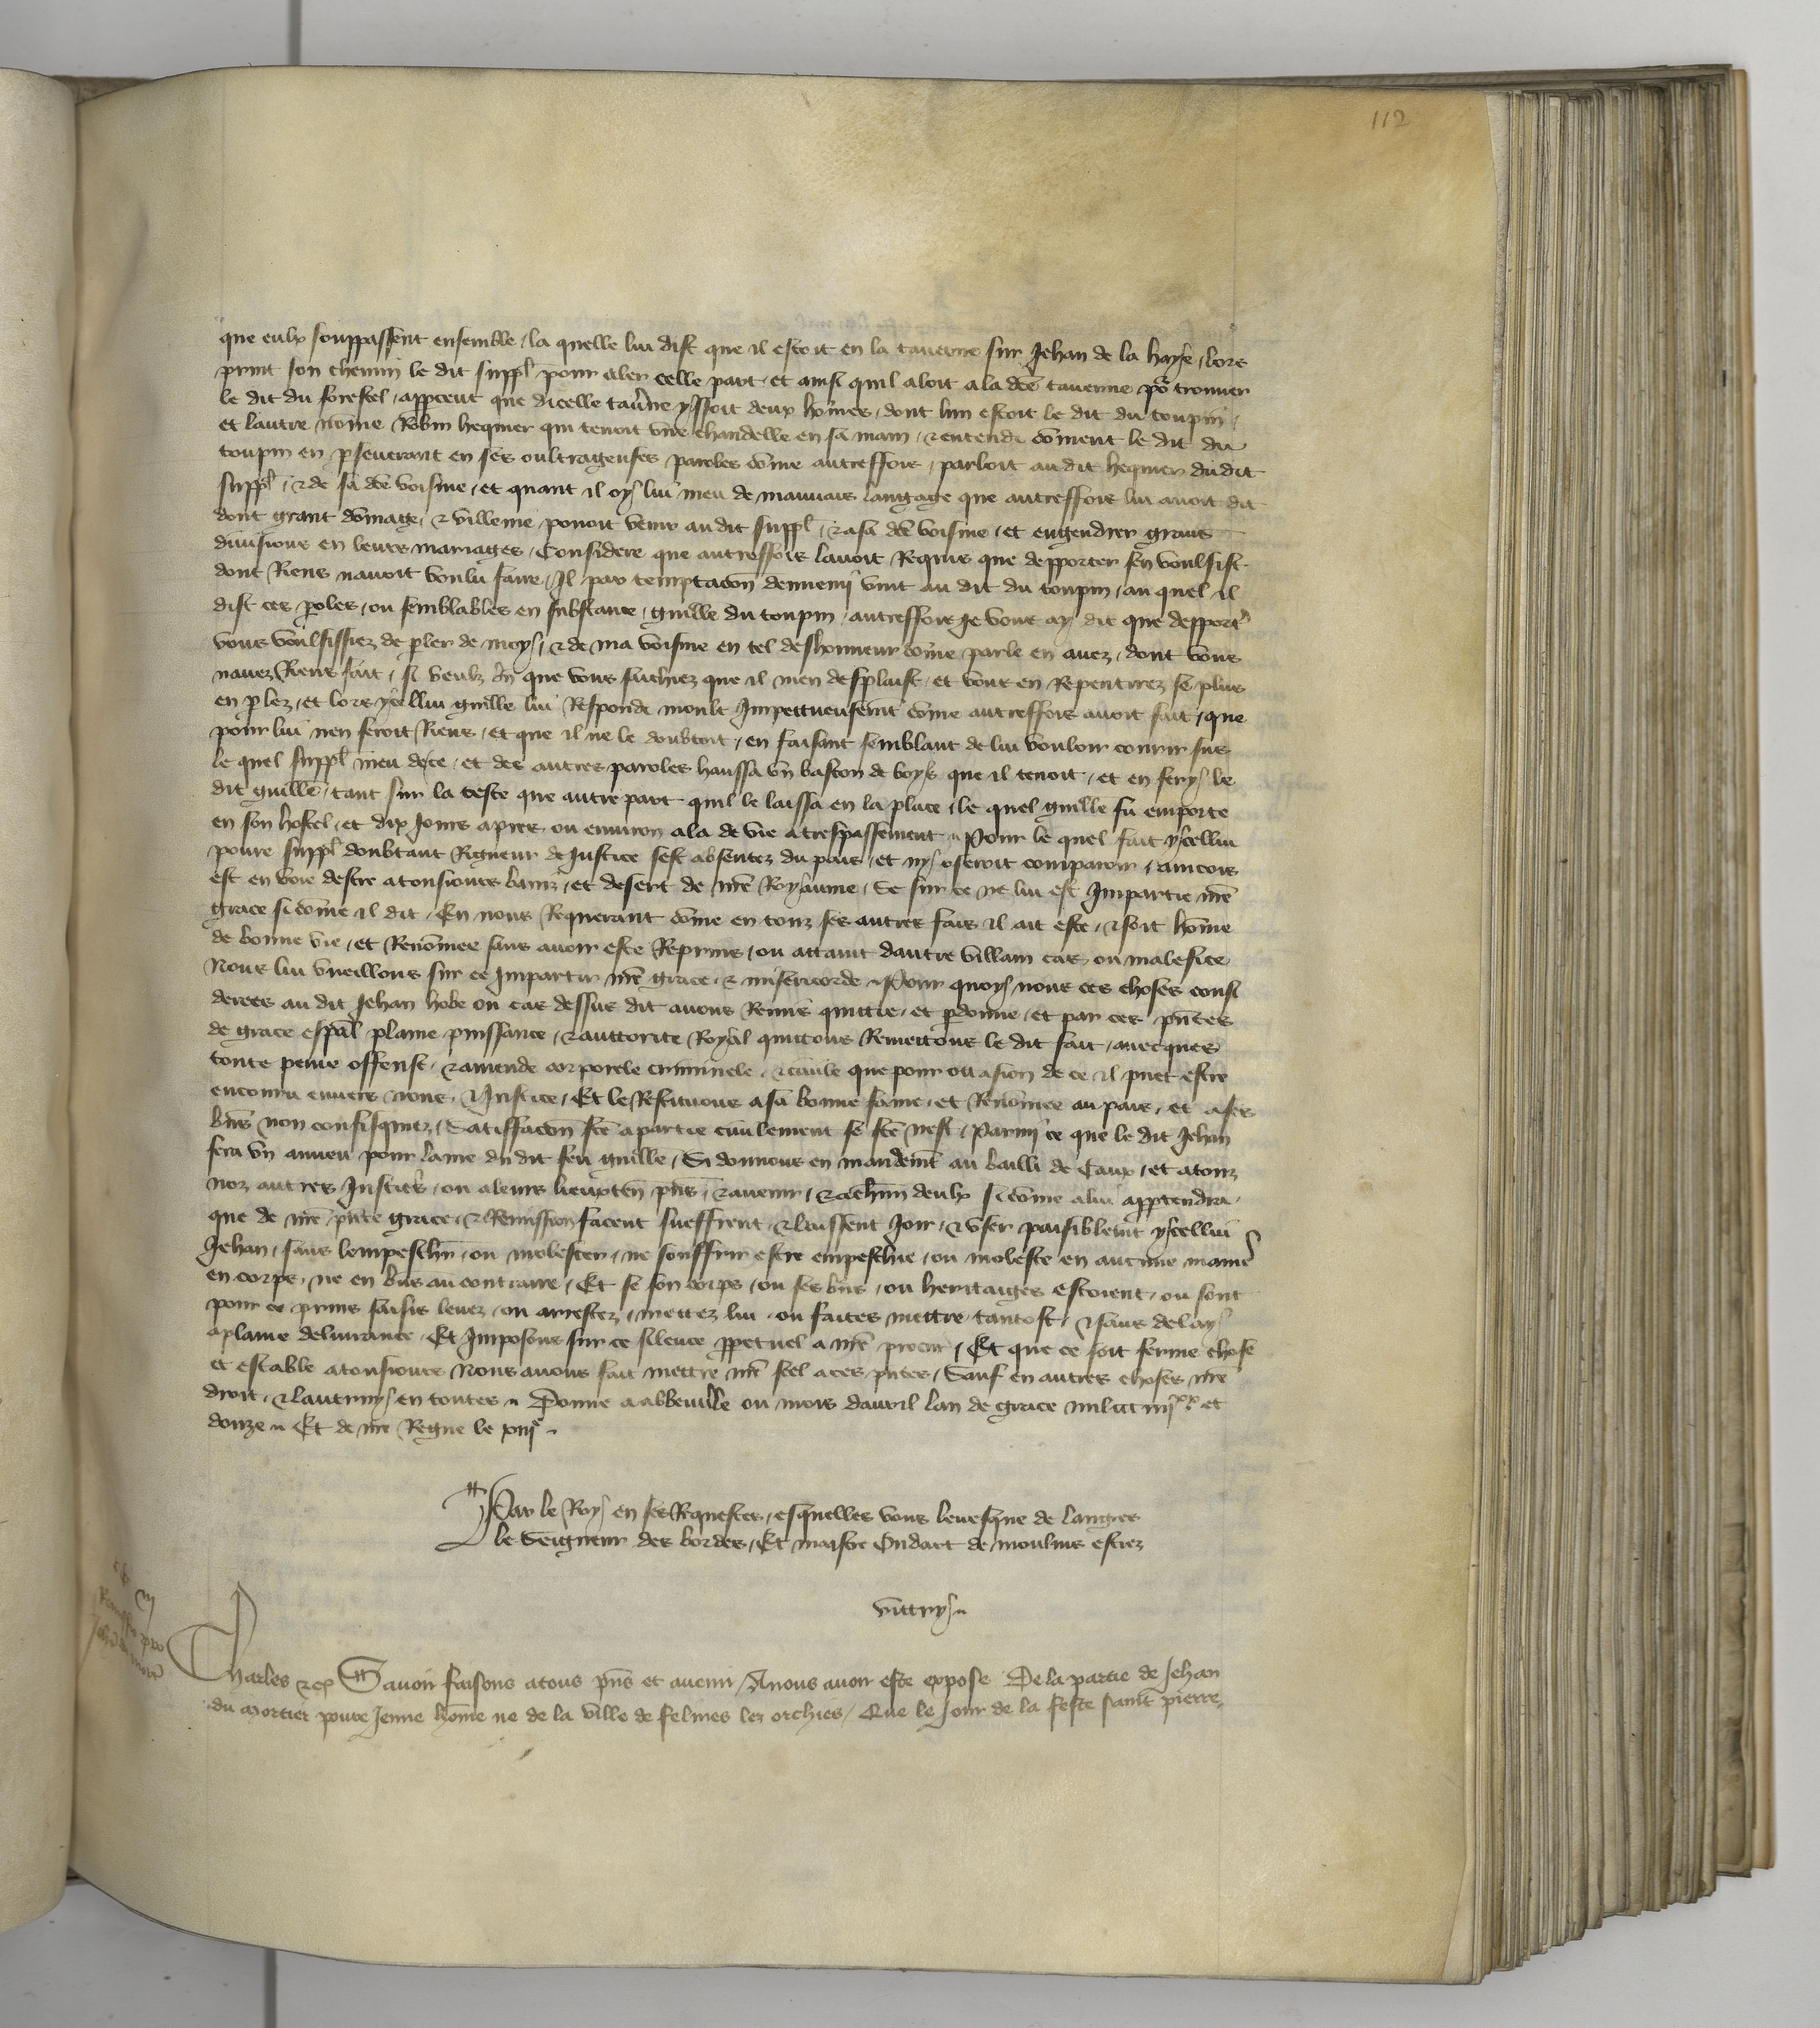 112
que eulx souppassent ensemble / la quelle lui dist que il estoit en la tauerne sur Jehan de la haye / lors
print son chemin le dit suppl pour aler celle part et ainsi quil aloit a la dce tauerne po᷑ trouuer
le dit du forestel / apperceut que dicelle tau̾ne yssoit deux hom̄es / dont lun estoit le dit du toupin /
et lautre nom̄e Robin heqmer qui tenoit vne chandelle en sa main / & entendi com̄ent le dit du
toupin en p̱seuerant en ses oultrageuses paroles com̄e autreffois / parloit au dit heqmer du dit
suppl / & de sa dce voisine / et quant il oy lui meu de mauuais langage que autreffois lui auoit dit
dont grant dom̄age / & villenie pouoit venir au dit suppl / & a sa dce voisine / et engendrer grans
diuisions en leurs mariages / Considere que autreffois lauoit Requis que depporter sen voulsist
dont Riens nauoit voulu faire / Il par temptacōn dennemi vint au dit du toupin / au quel il
dist ces p̱oles / ou semblables en substance / guille du toupin / autreffois Je vous ay dit que depport̾
vous voulsissiez de p̱ler de moy / & de ma voisine en tel deshonneur com̄e parle en auez / dont vous
nauez Riens fait / si veulx bn̄ que vous sachiez que il men desplaist / et vous en Repentirez se plus
en p̱lez / et lors ycellui guille lui Respondi moult Impetueusemt̄ com̄e autreffois auoit fait / que
pour lui nen feroit Riens / et que il ne le doubtoit / en faisant semblant de lui vouloir courir sus
le quel suppl meu de ce / et des autres paroles haussa vn baston de boys que il tenoit / et en fery le
dit guille / tant sur la teste que autre part quil le laissa en la place / le quel guille fu emporte
en son hostel / et dix Jours apres ou enuiron ala de vie a trespassement // Pour le quel fait ycellui
poure suppl doubtant Rigueur de Justice sest absentez du pais / et ny oseroit comparoir / ancois
est en voie destre a tousiours baniz / et desert de nr̄e Royaume / Se sur ce ne lui est Impartie nr̄e
grace si com̄e il dit / En nous Requerant com̄e en touz ses autres fais il ait este / & soit hom̄e
de bonne vie / et Renom̄ee sans auoir este Reprins / ou attaint dautre villain cas / ou malefice
Nous lui vueillons sur ce Impartir nr̄e grace / & misericorde // Pour quoy nous ces choses consi
derees au dit Jehan hobe ou cas dessus dit auons Remis quittie / et p̱donne / et par ces pn̄tes
de grace esp̄al plaine puissance / & auttorite Royal quittons Remettons le dit fait / auecques
toute peine offense / & amende corporele criminele / & ciuile que pour occasion de ce il puet estre
encouru enuers nous / & Justice / Et le Restituons a sa bonne fame / et Renom̄ee au pais / et a ses
bn̄s non confisquiez / Satisfacōn fcē a partie ciuilement se fcē nest / Parmi ce que le dit Jehan
fera vn anuel pour lame du dit feu guille / Si donnons en mandemt̄ au bailli de Caux / et a touz
noz autres Justic̾s / ou a leurs lieuxten̄ pn̄s / & auenir / & a chūn deulx si com̄e a lui appartendra
que de nr̄e pn̄te grace / & Remission facent sueffrent / & laissent Joir / & vser paisiblemt̄ ycellui
Jehan / sans lempeschr̄ / ou molester / ne souffrir estre empeschie / ou moleste en aucune manie᷑
en corps / ne en bn̄s au contraire / Et se son corps / ou ses bn̄s / ou heritaiges estoient / ou sont
pour ce prins saisis leuez / ou arrestez / mettez lui / ou faites mettre tantost / & sans delay
a plaine deliurance / Et Imposons sur ce silence p̱petuel a nr̄e procur̄ / Et que ce soit ferme chose
et estable a tousiours Nous auons fait mettre nr̄e seel a ces pn̄tes / Sauf en autres choses nr̄e
droit / & lautruy en toutes // Donne a abbeuille ou mois dauril lan de grace mil ccc iiijxx et
douze // Et de nr̄e Regne le xije //
Par le Roy en ses Requestes / esquelles vous leuesque de langres
le Seigneur des bordes / Et maistre Oudart de moulins estiez
vittry //
Charles &cp̄ Sauoir faisons a tous pn̄s et auenir / A nous auoir este expose De la partie de Jehan
du mortier poure Jenne hom̄e ne de la ville de felines lez orchies / Que le Jour de la feste saint pierre